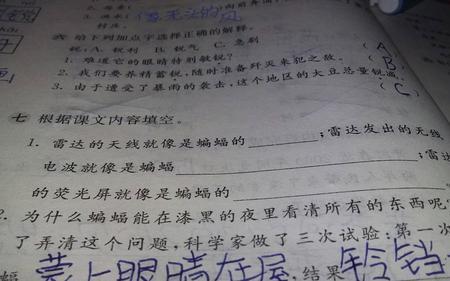 (像无法的风
给下列加点字选择正确的解释。
锐:A. 锐利 B. 锐气 C. 急剧
1. 难道它的眼睛特别敏锐? (A
2. 我们要养精蓄锐,随时准备歼灭来犯之敌。(B)
3. 由于遭受了暴雨的袭击,这个地区的大豆总量锐减。(C)
七 根据课文内容填空。
1. 雷达的天线就像是蝙蝠的;雷达发出的无线
电波就像是蝙蝠的;雷达
的荧光屏就像是蝙蝠的
2. 为什么蝙蝠能在漆黑的夜里看清所有的东西呢
了弄清这个问题,科学家做了三次试验:第一次
蝠 蒙上眼睛在屋,结果 铃铛